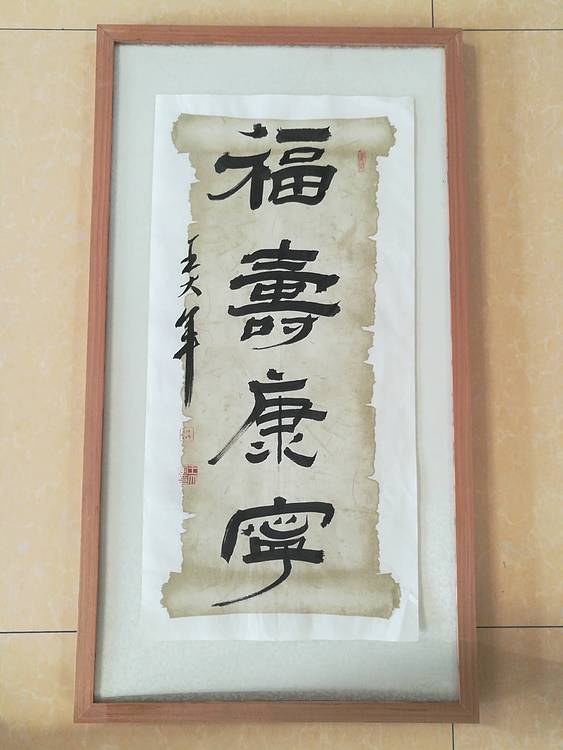 福壽康寧
王大年